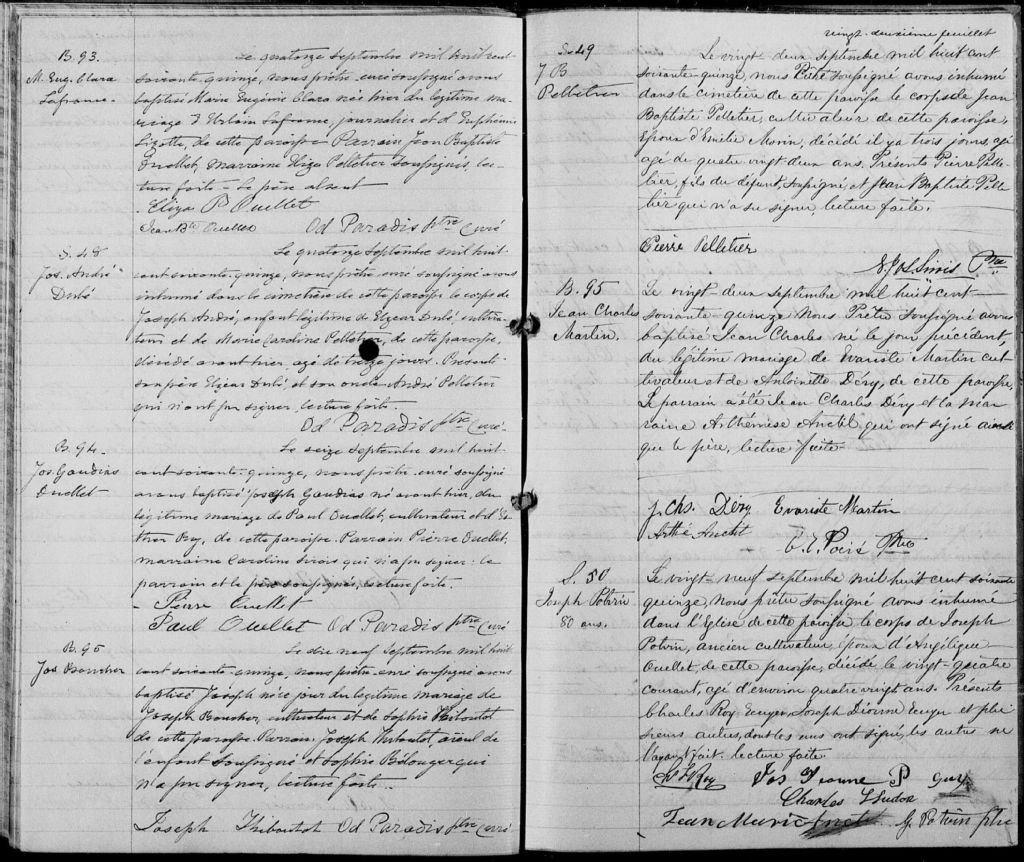 B. 93.
M. Eug. Clara
Lafrance.
Le quatorze Septembre mil huit cent
soixante quinze, nous prêtre-curé soussigné avons
baptisé Marie Eugénie Clara née hier du légitime ma-
riage d'Urbain Lafrance, journalier et d'Euphémie
Lizotte, de cette paroisse. Parrain Jean Baptiste
Ouellet, marraine Eliza Pelletier soussignés, lec-
ture faite. Le père absent
Eliza P Ouellet
Jean Bte Ouellet Od Paradis ptre Curé
S. 48
Jos. André
Dubé
Le quatorze Septembre mil huit-
cent soixante-quinze, nous prêtre curé soussigné avons
inhumé dans le cimetière de cette paroisse le corps de
Joseph André, enfant légitime de Elzear Dubé, cultiva-
teur et de Marie Caroline Pelletier, de cette paroisse,
décédé avant hier, agé de treize jours. Présents
son père Elzéar Dubé et son oncle André Pelletier
qui n'ont pu signer, lecture faite.
Od Paradis ptre Curé.
B. 94.
Jos. Gaudias
Ouellet
Le seize Septembre mil huit-
cent soixante-quinze, nous prêtre-curé soussigné
avons baptisé Joseph Gaudias né avant hier, du
légitime mariage de Paul Ouellet, cultivateur et d'Es-
ther Roy, de cette paroisse. Parrain Pierre Ouellet,
marraine Caroline Sirois qui n'a pu signer: le
parrain et le père soussignés, lecture faite.
Pierre Ouellet
Paul Ouellet Od Paradis ptre Curé
B. 95
Jos Boucher
Le dix neuf Septembre mil huit
cent soixante-quinze, nous prêtre-curé soussigné avons
baptisé Joseph né ce jour du légitime mariage de
Joseph Boucher, cultivateur et de Sophie Thiboutot
de cette paroisse. Parrain Joseph Thiboutot, aieul de
l'enfant soussigné et Sophie Bélonger qui
n'a pu signer, lecture faite.
Joseph Thiboutot Od Paradis ptre Curé
vingt-deuxième feuillet
S. 49
J B
Pelletier
Le vingt deux septembre mil huit cent
soixante-quinze, nous Prêtre soussigné avons inhumé
dans le cimetière de cette paroisse le corps de Jean
Baptiste Pelletier, cultivateur de cette paroisse,
Epoux d'Emélie Morin, décédé il y a trois jours, agé
agé de quatre vingt deux ans. Présents Pierre Pelle-
tier, fils du défunt, soussigné, et Jean Baptiste Pelle-
tier qui n'a su signer, lecture faite.
Pierre Pelletier
Ptre
B. 95
Jean Charles
Martin.
Le vingt-deux septembre mil huit cent
soixante-quinze Nous Prêtre soussigné avons
baptisé Jean Charles né le jour précédent,
du légitime mariage de Evariste Martin cul-
tivateur et de Antoinette Déry, de cette paroisse,
Le parrain a été Jean Charles Déry et la mar-
raine Arthémise Anctil qui ont signé ainsi
que le père, lecture faite
J. Chs. Déry Evariste Martin
Arthé Anctil
Ptre
S. 50
Joseph Potvin
80 ans.
Le vingt-neuf septembre mil huit cent soixante
quinze, nous prêtre soussigné avons inhumé
dans l'Eglise de cette paroisse le corps de Joseph
Potvin, ancien cultivateur, époux d'Angélique
Ouellet, de cette paroisse, décédé le vingt-quatre
courant, agé d'environ quatre vingt ans. Présents
Charles Roy Ecuyer, Joseph Dionne Ecuyer et plu-
sieurs autres, dont les uns ont signé, les autres ne
l'ayant fait. lecture faite
Jos Dionne P
Charles
Jean Marie Anctil J. Potvin ptre